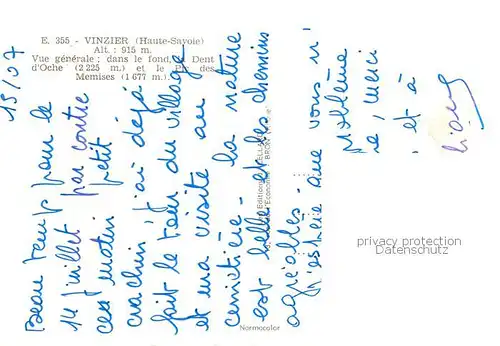 E. 355 - VINZIER (Haute-Savoie)
Alt. : 915 m.
Vue générale ; dans le fond, la Dent
d'Oche (2 225 m.) et le Pic des
Memises (1 677 m.)
15/07
Beau temps pour le
14 juillet par contre
ce matin petit
crachin j'ai déjà
fait le tour du village
et ma visite au
cimetière. La nature
est belle et les chemins
agréables.
J'espère que vous n'
problème
, merci
, et à
Editions
BRON
Normacolor
privacy protection
Datenschutz